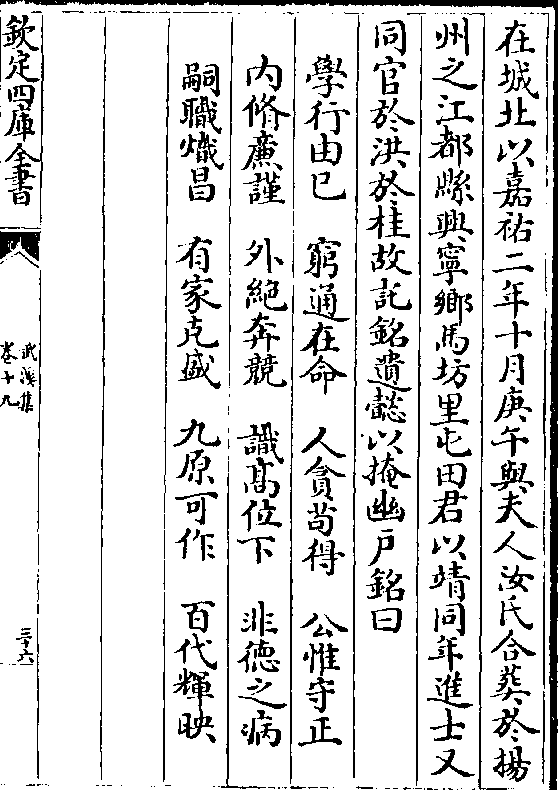 在城北以嘉祐二年十月庚午與夫人汝氏合葬於揚
州之江都縣興寧鄉馬坊里屯田君以靖同年進士又
同官於洪於桂故託銘遺懿以掩幽戸銘曰
學行由已　窮通在命　人貪苟得　公惟守正
内脩廉謹　外絶奔競　識髙位下　非德之病
嗣職熾昌　有家克盛　九原可作　百代輝映
欽定四庫全書
武溪集
卷十九
三十六